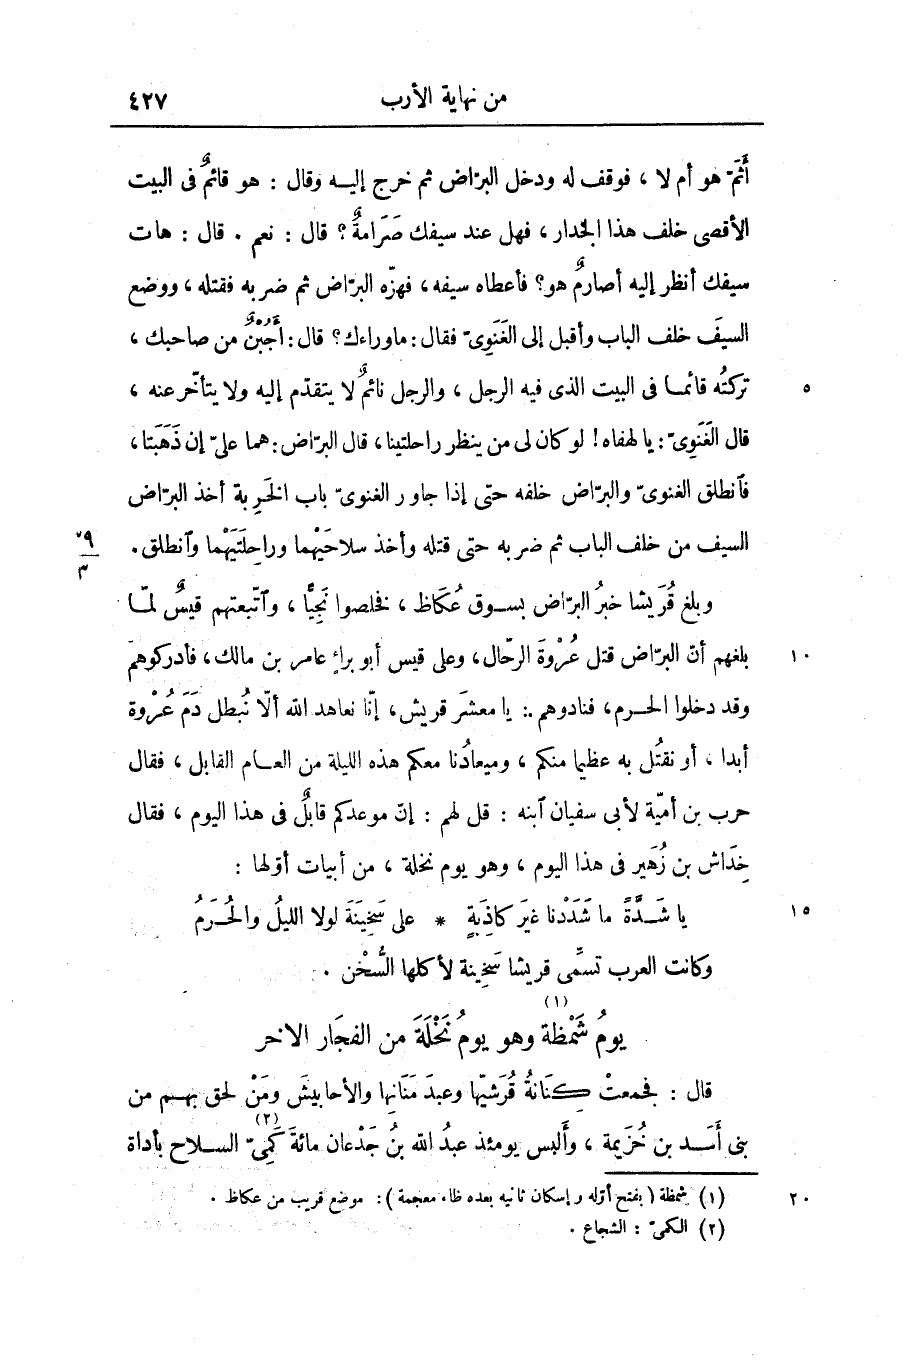 من نهاية الأرب ٤٢٧
أَثَمَّ هو أم لا ، فوقف له ودخل البرّاض ثم خرج إليــه وقال : هو قائمٌ فى البيت
الأقصى خلف هذا الجدار ، فهل عند سيفك صَرَامةٌ ؟ قال : نعم . قال : هات
سيفك أنظر إليه أصارمٌ هو؟ فأعطاه سيفه ، فهزّه البرّاض ثم ضربه فقتله ، ووضع
السيفَ خلف الباب وأقبل إلى الغَنَوِىّ فقال : ماوراءك ؟ قال : أَجْبَنُ من صاحبك ،
تركتُه قائمــا فى البيت الذى فيه الرجل ، والرجل نائمٌ لا يتقدّم إليه ولا يتأخّر عنه ، ٥
قال الغَنَوِىّ : يا لهفاه ! لو كان لى من ينظر راحلتينا ، قال البرّاض : هما علىّ إن ذَهَبَتا ،
فٱنطلق الغنوىّ والبرّاض خلفه حتى إذا جاور الغنوىّ باب الخَرِبة أخذ البرّاض
السيف من خلف الباب ثم ضربه حتى قتله وأخذ سلاحَيْهما وراحلتَيْهما وٱنطلق . ٩
٣
وبلغ قُرَيشا خبرُ البرّاض بســوق عُكَاظ ، فخلصوا نَجِيًّا ، وٱتّبعتهم قيسٌ لمّــا
بلغهم أنّ البرّاض قتل عُرْوةَ الرحّال ، وعلى قيس أبو براءٍ عامر بن مالك ، فأدركوهم ١٠
وقد دخلوا الحــرم ، فنادوهم : يا معشَر قريش ، إنّا نعاهد الله ألّا نُبطل دَمَ عُرْوة
أبدا ، أو نقتُل به عظيما منكم ، وميعادُنا معكم هذه الليلة من العــام القابل ، فقال
حرب بن أميّة لأبى سفيان ٱبنه : قل لهم : إنّ موعدكم قابلٌ فى هذا اليوم ، فقال
خِدَاش بن زُهَير فى هذا اليوم ، وهو يوم نخلة ، من أبيات أوّلها :
يا شَــدَّةً ما شَدَدْنا غيرَ كاذِبَةٍ * على سَخِينَةَ لولا الليلُ والحُــرَمُ ١٥
وكانت العرب تسمَّى قريشا سَخِينة لأكلها السُّخْن .
يومُ شَمْظة (١) وهو يومُ نَخْلَةَ من الفجَار الآخر
قال : فجمعتْ كِنَانةُ قُرَشِيَّها وعبدَ مَنَاتِها والأحابيشَ ومَنْ لحق بهــم من
بنى أَسَــد بن خُزَيمة ، وأَلبس يومئذ عبدُ الله بنُ جَدْعان مائةَ كَمِىّ (٢) السلاح بأداة
(١) شمظة (بفتح أوّله وإسكان ثانيه بعده ظاء معجمة) : موضع قريب من عكاظ . ٢٠
(٢) الكمىّ : الشجاع .